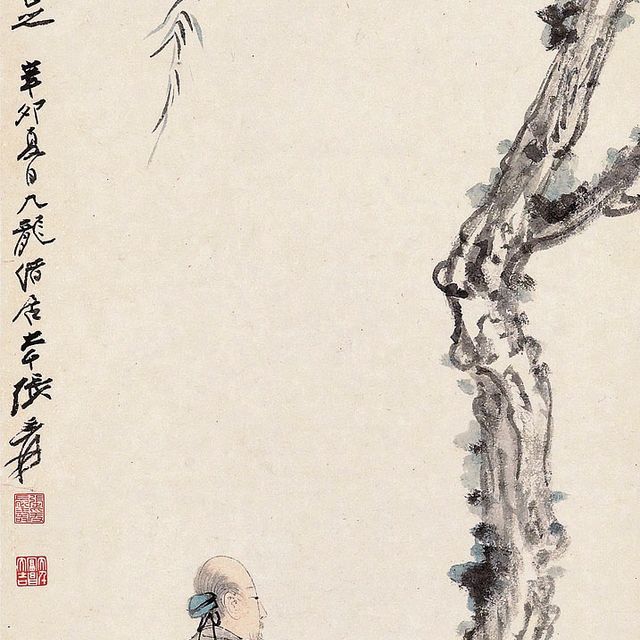 之 辛卯夏日九龍借居大千張爰